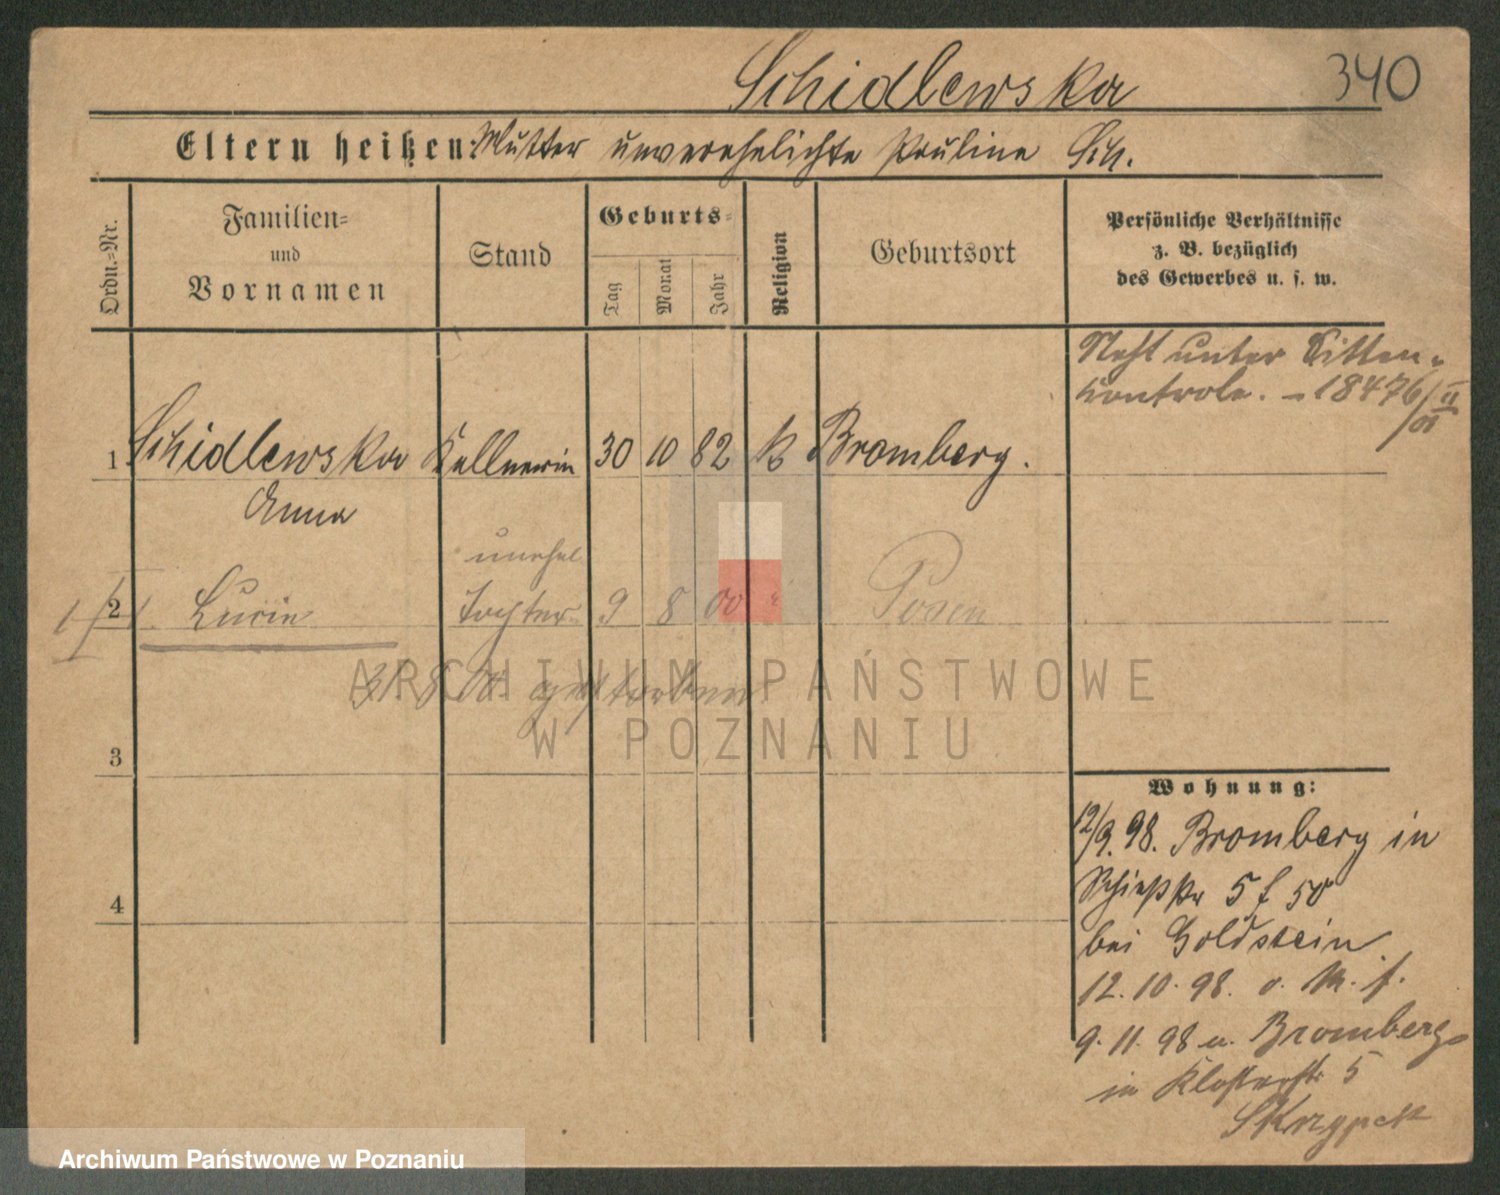 Schidlewska
340
Eltern heißen: Mutter unverehelichte Pauline Sch.
Ordn.=Nr.
Familien=
und
Vornamen
Stand
Geburts=
Tag
Monat
Jahr
Religion
Geburtsort
Persönliche Verhältnisse
z. B. bezüglich
des Gewerbes u. s. w.
Steht unter Sitten-
controle. – 18476/II
1 Schidlewska Kellnerin 30 10 82 k Bromberg.
Anna
unehel
2 Lucie Tochter 9 8 00 " Posen
31 8 00 gestorben
ARCHIWUM PAŃSTWOWE
W POZNANIU
3
4
Wohnung:
12/9. 98. Bromberg in
Schießstr 5 f 50
bei Goldstein
12. 10. 98. o. M. f.
9. 11. 98 u. Bromberg
in Klosterstr 5
Archiwum Państwowe w Poznaniu